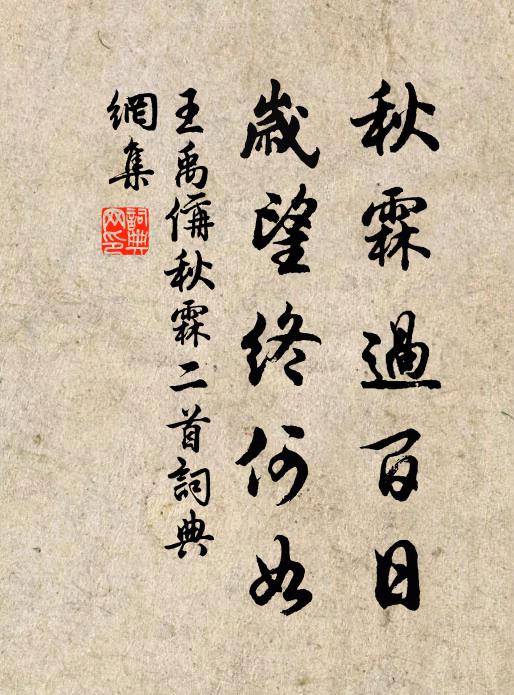 秋霖過百日
歲望終何如
王禹偁秋霖二首詞典
網集
詞典網印